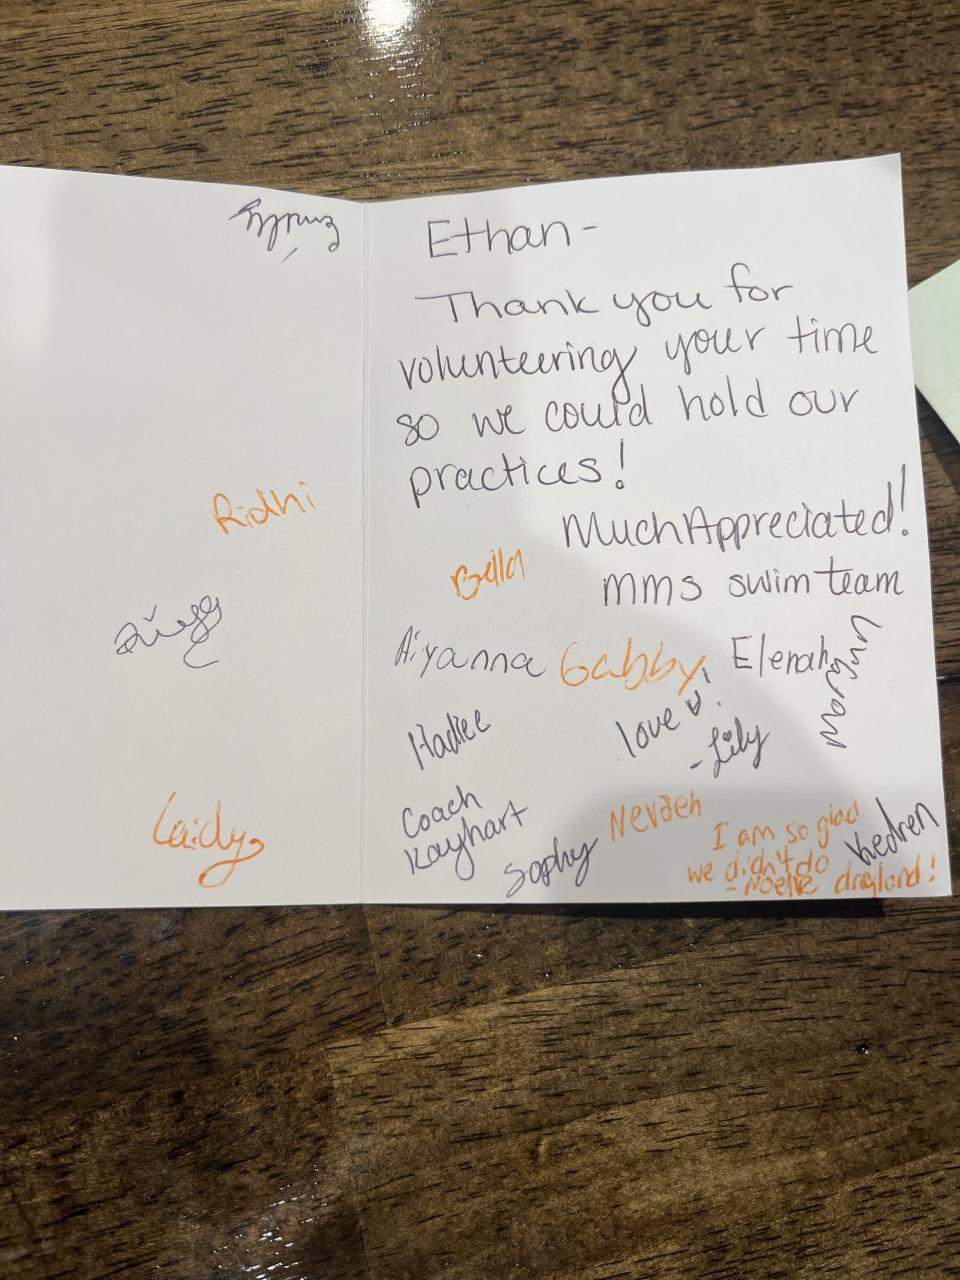 Ethan -
Thank you for
volunteering your time
so we could hold our
practices!
Much Appreciated!
mms swim team
Ridhi
Bella
Aiyanna
Gabby
Elenah
Hadlee
love
-Lily
Coach
Kayhart
Sophy
Nevaeh
I am so glad
we didn't do
dryland!
-Noelle
Kedren
Laidy